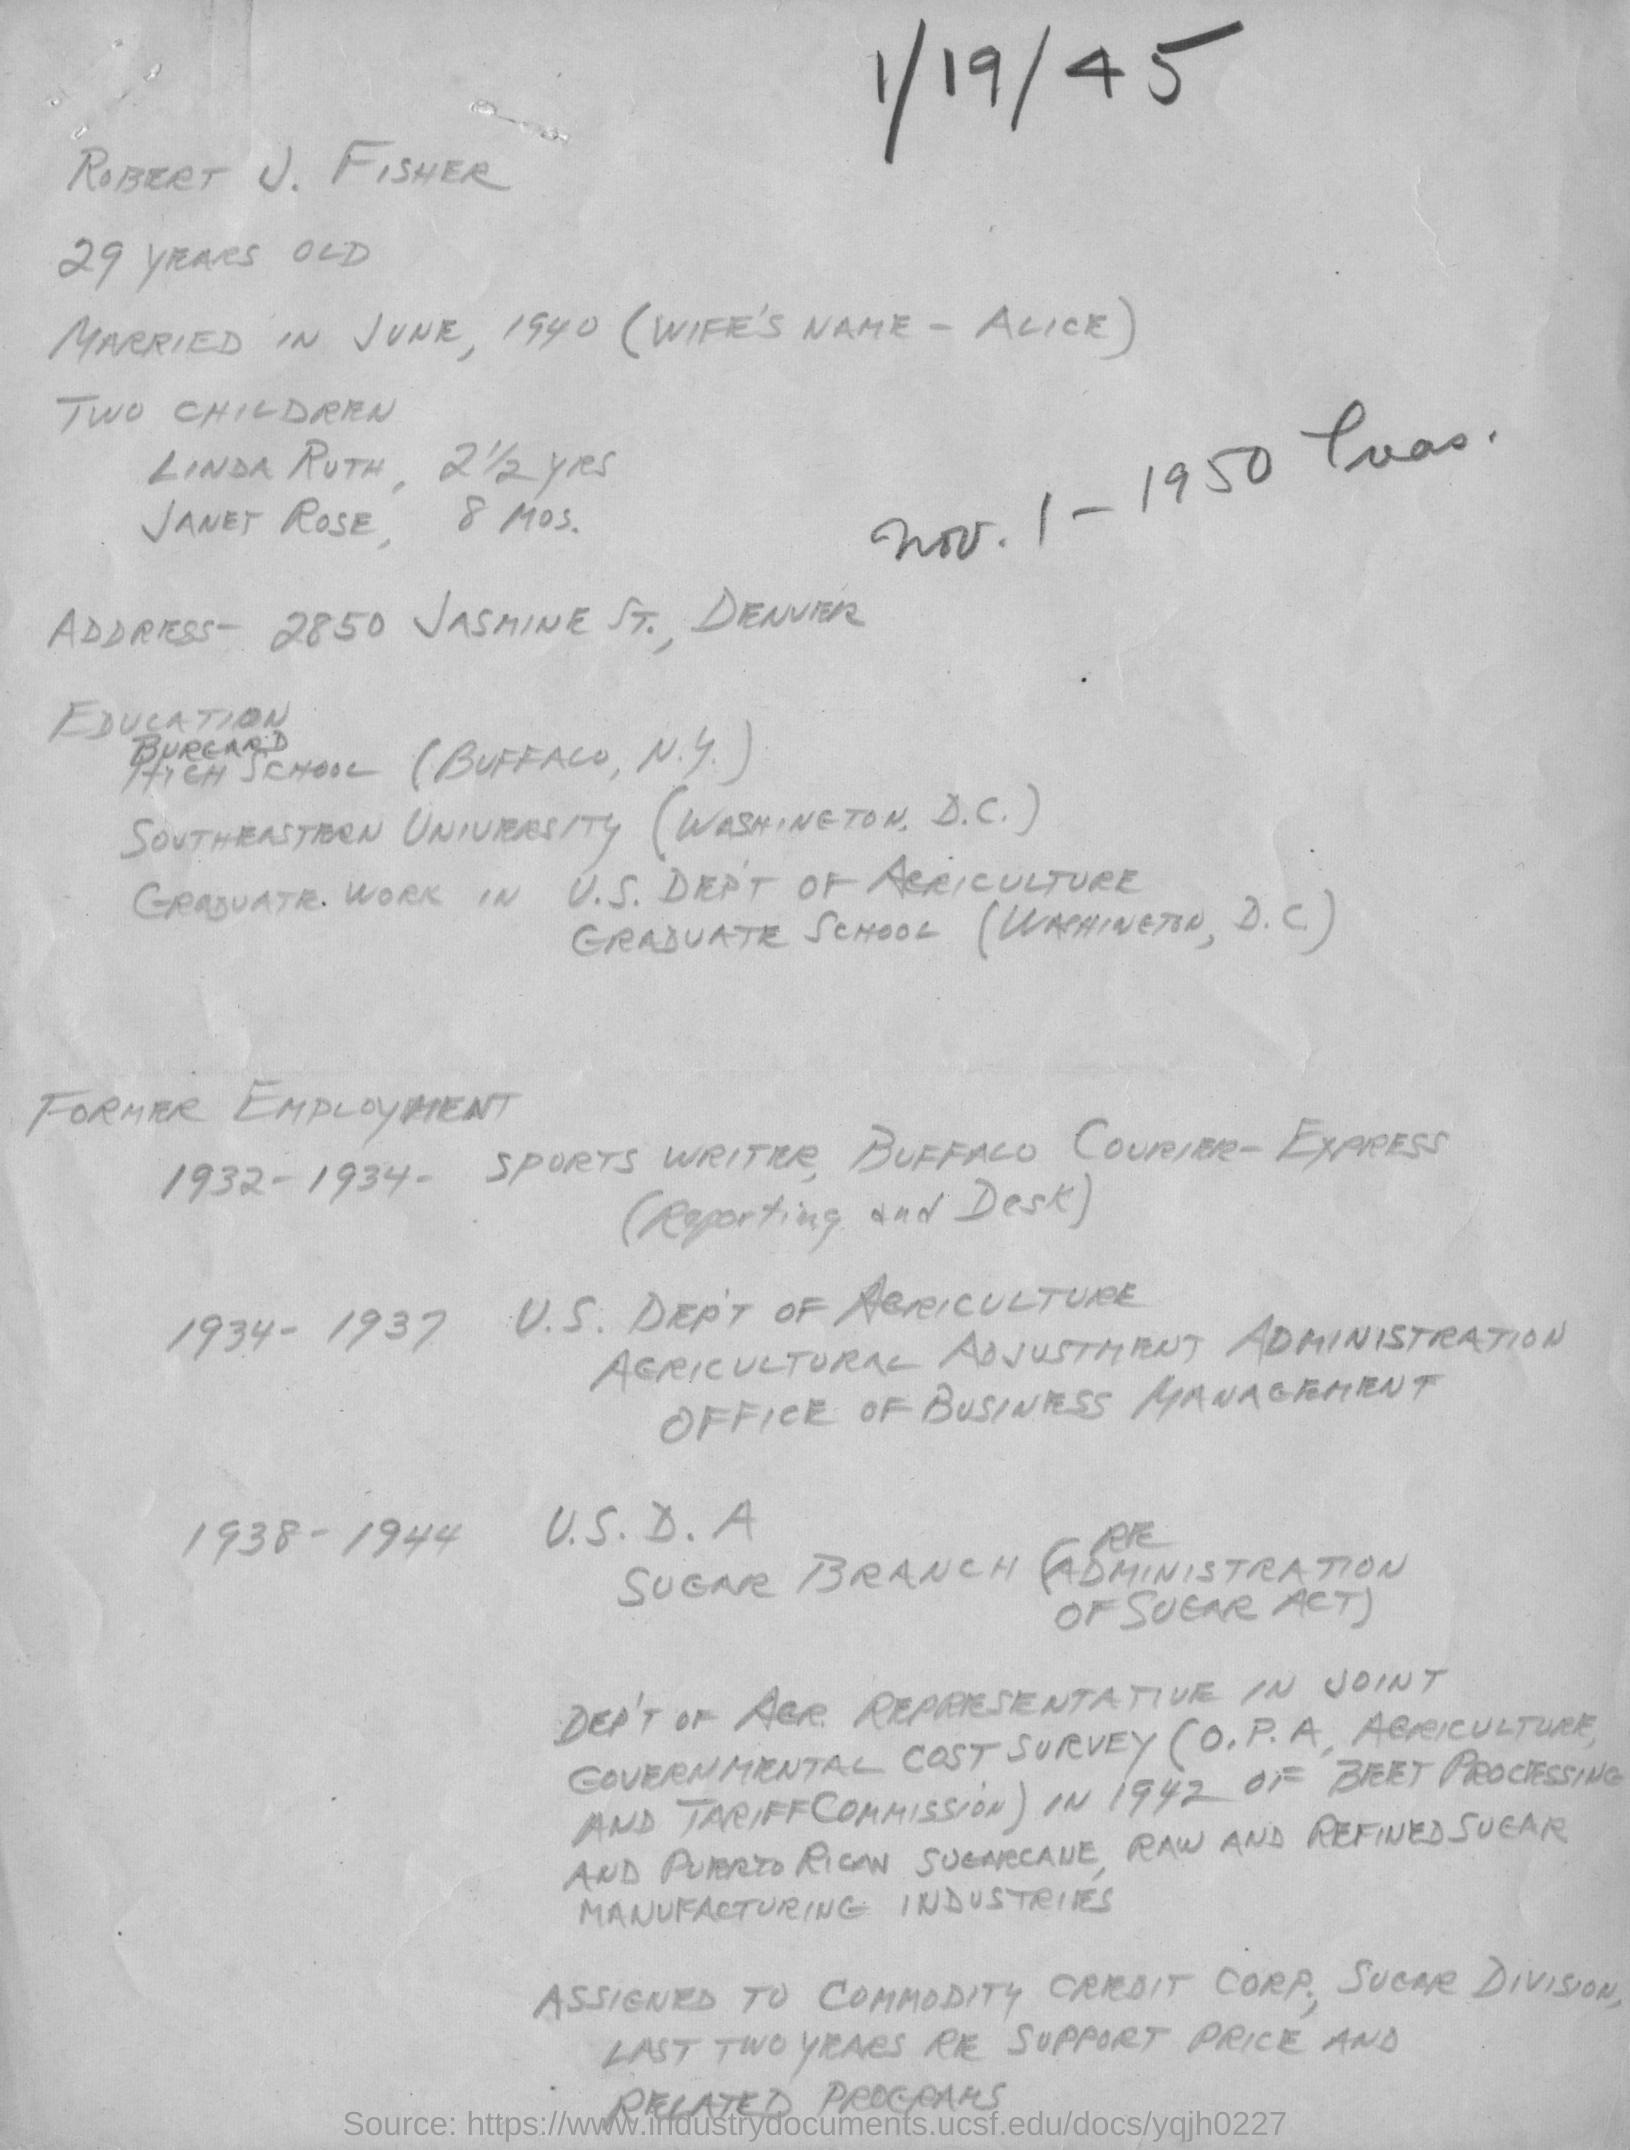 1/19/45
ROBERT J. FISHER
29 YEARS OLD
MARRIED IN JUNE, 1940 (WIFE'S NAME - ALICE)
TWO CHILDREN
LINDA RUTH, 2 1/2 YRS
JANET ROSE, 8 MOS.
Nov. 1 - 1950
ADDRESS - 2850 JASMINE ST., DENVER
EDUCATION
BURGARD
HIGH SCHOOL (BUFFALO, N.Y.)
SOUTHEASTERN UNIVERSITY (WASHINGTON, D.C.)
GRADUATE WORK IN U.S. DEP'T OF AGRICULTURE
GRADUATE SCHOOL (WASHINGTON, D.C)
FORMER EMPLOYMENT
1932-1934- SPORTS WRITER, BUFFALO COURIER-EXPRESS
(Reporting and Desk)
1934-1937 U.S. DEP'T OF AGRICULTURE
AGRICULTURAL ADJUSTMENT ADMINISTRATION
OFFICE OF BUSINESS MANAGEMENT
1938-1944 U.S.D.A
RE
SUGAR BRANCH (ADMINISTRATION
OF SUGAR ACT)
DEP'T OF AGR. REPRESENTATIVE IN JOINT
GOVERNMENTAL COST SURVEY (O.P.A, AGRICULTURE,
AND TARIFF COMMISSION) IN 1942 OF BEET PROCESSING
AND PUERTO RICAN SUGARCANE, RAW AND REFINED SUGAR
MANUFACTURING INDUSTRIES
ASSIGNED TO COMMODITY CREDIT CORP., SUGAR DIVISION,
LAST TWO YEARS RE SUPPORT PRICE AND
RELATED PROGRAMS
Source: https://www.industrydocuments.ucsf.edu/docs/yqjh0227